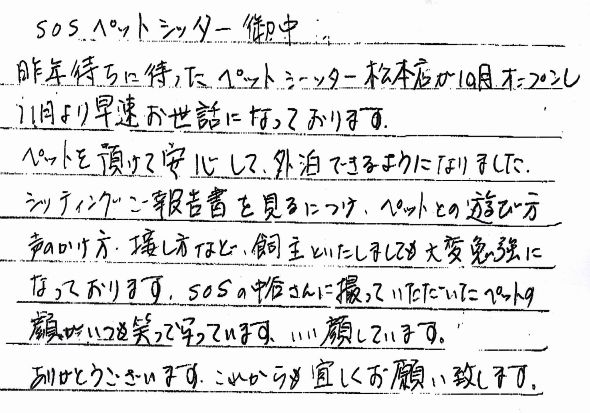 SOSペットシッター御中
昨年待ちに待ったペットシッター松本店が10月オープンし
11月より早速お世話になっております。
ペットを預けて安心して、外泊できるようになりました。
シッティングご報告書を見るにつけ、ペットとの遊び方
声のかけ方、接し方など、飼主といたしましても大変勉強に
なっております。SOSの中谷さんに撮っていただいたペットの
顔がいつも笑って写っています。いい顔しています。
ありがとうございます。これからも宜しくお願い致します。